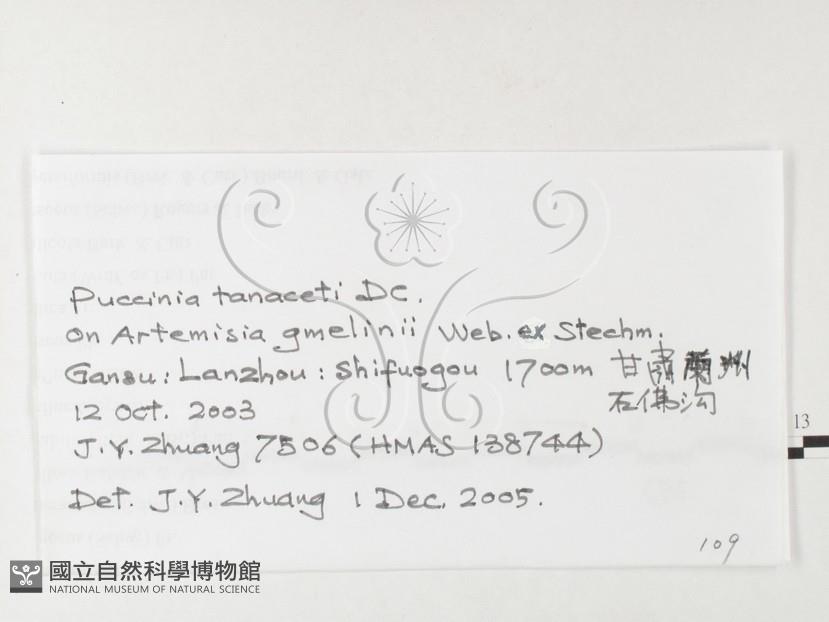 Puccinia tanaceti DC.
On Artemisia gmelinii Web. ex Stechm.
Gansu: Lanzhou: Shifuogou 1700m 甘肅蘭州
石佛沟
12 Oct. 2003
J.Y. Zhuang 7506 (HMAS 138744)
Det. J.Y. Zhuang 1 Dec. 2005.
109
13
國立自然科學博物館
NATIONAL MUSEUM OF NATURAL SCIENCE